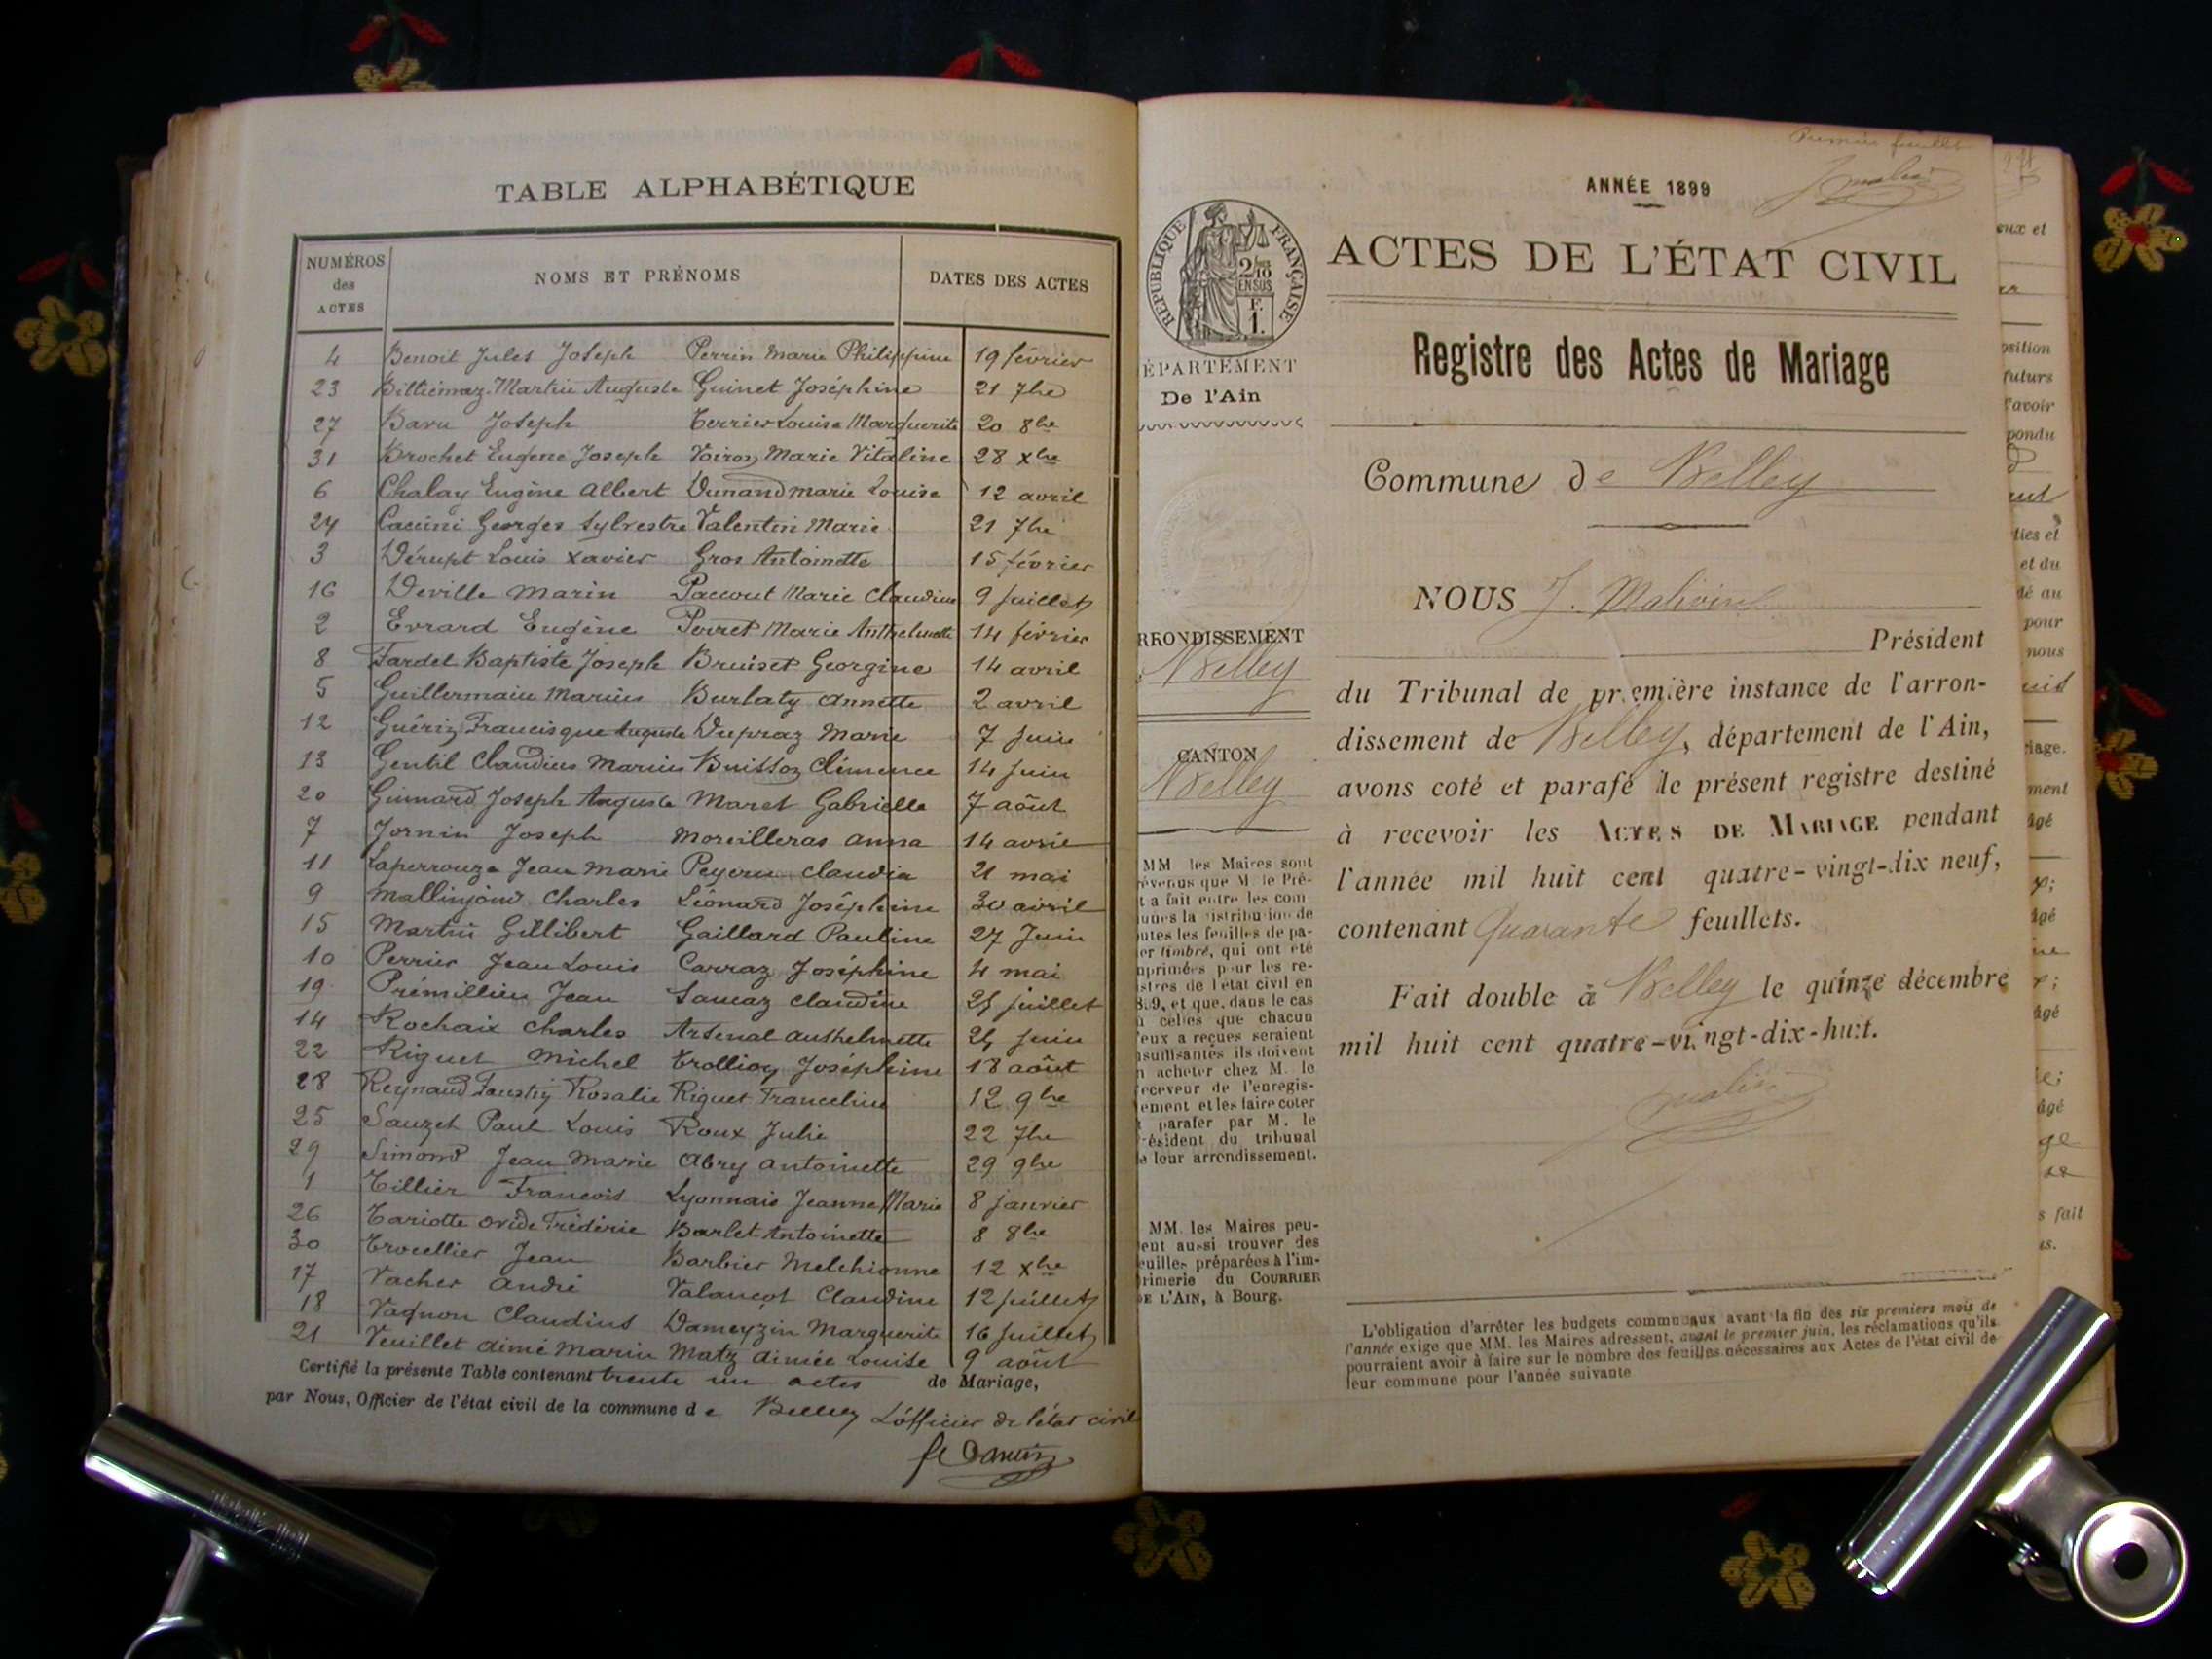 TABLE ALPHABÉTIQUE
NUMÉROS des ACTES
NOMS ET PRÉNOMS
DATES DES ACTES
4 Benoit Jules Joseph Perrin Marie Philippine 19 février
23 Billiémaz Martin Auguste Guinet Joséphine 21 7bre
27 Baru Joseph Terrier Louise Marguerite 20 8bre
31 Brochet Eugène Joseph Voiron Marie Vitaline 28 Xbre
6 Chalay Eugène Albert Dunand Marie Louise 12 avril
24 Caccini Georges Sylvestre Valentin Marie 21 7bre
3 Dérupt Louis Xavier Gros Antoinette 15 février
16 Deville Marin Paccout Marie Claudine 9 Juillet
2 Evrard Eugène Poiret Marie Anthelmette 14 février
8 Fardel Baptiste Joseph Bruiset Georgine 14 avril
5 Guillermain Marius Burlaty Annette 2 avril
12 Guérin Francisque Auguste Dupraz Marie 7 Juin
13 Gentil Claudius Marius Buissoz Clémence 14 Juin
20 Guinard Joseph Auguste Maret Gabrielle 7 août
7 Jornin Joseph Moreilleras Anna 14 avril
11 Laperrouze Jean Marie Claudia 21 mai
9 Mallinjoud Charles Léonard Joséphine 30 avril
15 Martin Gillibert Gaillard Pauline 27 Juin
10 Perrier Jean Louis Carraz Joséphine 4 mai
19 Prémillieu Jean Claudine 25 juillet
14 Rochaix Charles Arsenal Anthelmette 24 Juin
22 Riguet Michel Trollioy Joséphine 18 août
28 Reynaud Faustin Rosalie Riguet Franceline 12 9bre
25 Sauzet Paul Louis Roux Julie 22 7bre
29 Simond Jean Marie Abry Antoinette 29 9bre
1 Tillier François Lyonnais Jeanne Marie 8 janvier
26 Tariotte Ovide Frédéric Barlet Antoinette 8 8bre
30 Trocellier Jean Barbier Melchionne 12 Xbre
17 Vacher André Valançot Claudine 12 Juillet
18 Vagnon Claudius Dameyzin Marguerite 16 Juillet
21 Veuillet Aimé Marin Matz Aimée Louise 9 août
Certifié la présente Table contenant trente un actes de Mariage,
par Nous, Officier de l'état civil de la commune de Belley L'officier de l'état civil
Premier feuillet
ANNÉE 1899
RÉPUBLIQUE FRANÇAISE
2/10 EN SUS
F. 1.
ACTES DE L'ÉTAT CIVIL
Registre des Actes de Mariage
ÉPARTEMENT
De l'Ain
Commune de Belley
NOUS J. Président
RRONDISSEMENT
Belley
CANTON
Belley
du Tribunal de première instance de l'arron-
dissement de Belley, département de l'Ain,
avons coté et parafé le présent registre destiné
à recevoir les ACTES DE MARIAGE pendant
l'année mil huit cent quatre-vingt-dix neuf,
contenant Quarante feuillets.
Fait double à Belley le quinze décembre
mil huit cent quatre-vingt-dix-huit.
MM les Maires sont
évenus que M. le Pré-
t a fait entre les com
unes la distribution de
utes les feuilles de pa-
er timbré, qui ont été
nprimées pour les re-
istres de l'état civil en
899, et que, dans le cas
celles que chacun
eux a reçues seraient
nsuffisantes ils doivent
n acheter chez M. le
eceveur de l'enregis-
ement et les faire coter
t parafer par M. le
résident du tribunal
e leur arrondissement.
MM. les Maires peu-
ent aussi trouver des
euilles préparées à l'im-
rimerie du COURRIER
DE L'AIN, à Bourg.
L'obligation d'arrêter les budgets communaux avant la fin des six premiers mois de
l'année exige que MM. les Maires adressent, avant le premier juin, les réclamations qu'ils
pourraient avoir à faire sur le nombre des feuilles nécessaires aux Actes de l'état civil de
leur commune pour l'année suivante
eux et
osition
futurs
l'avoir
pondu
ties et
et du
dé au
pour
nous
riage.
ment
âgé
âgé
âgé
âgé
s fait
es.